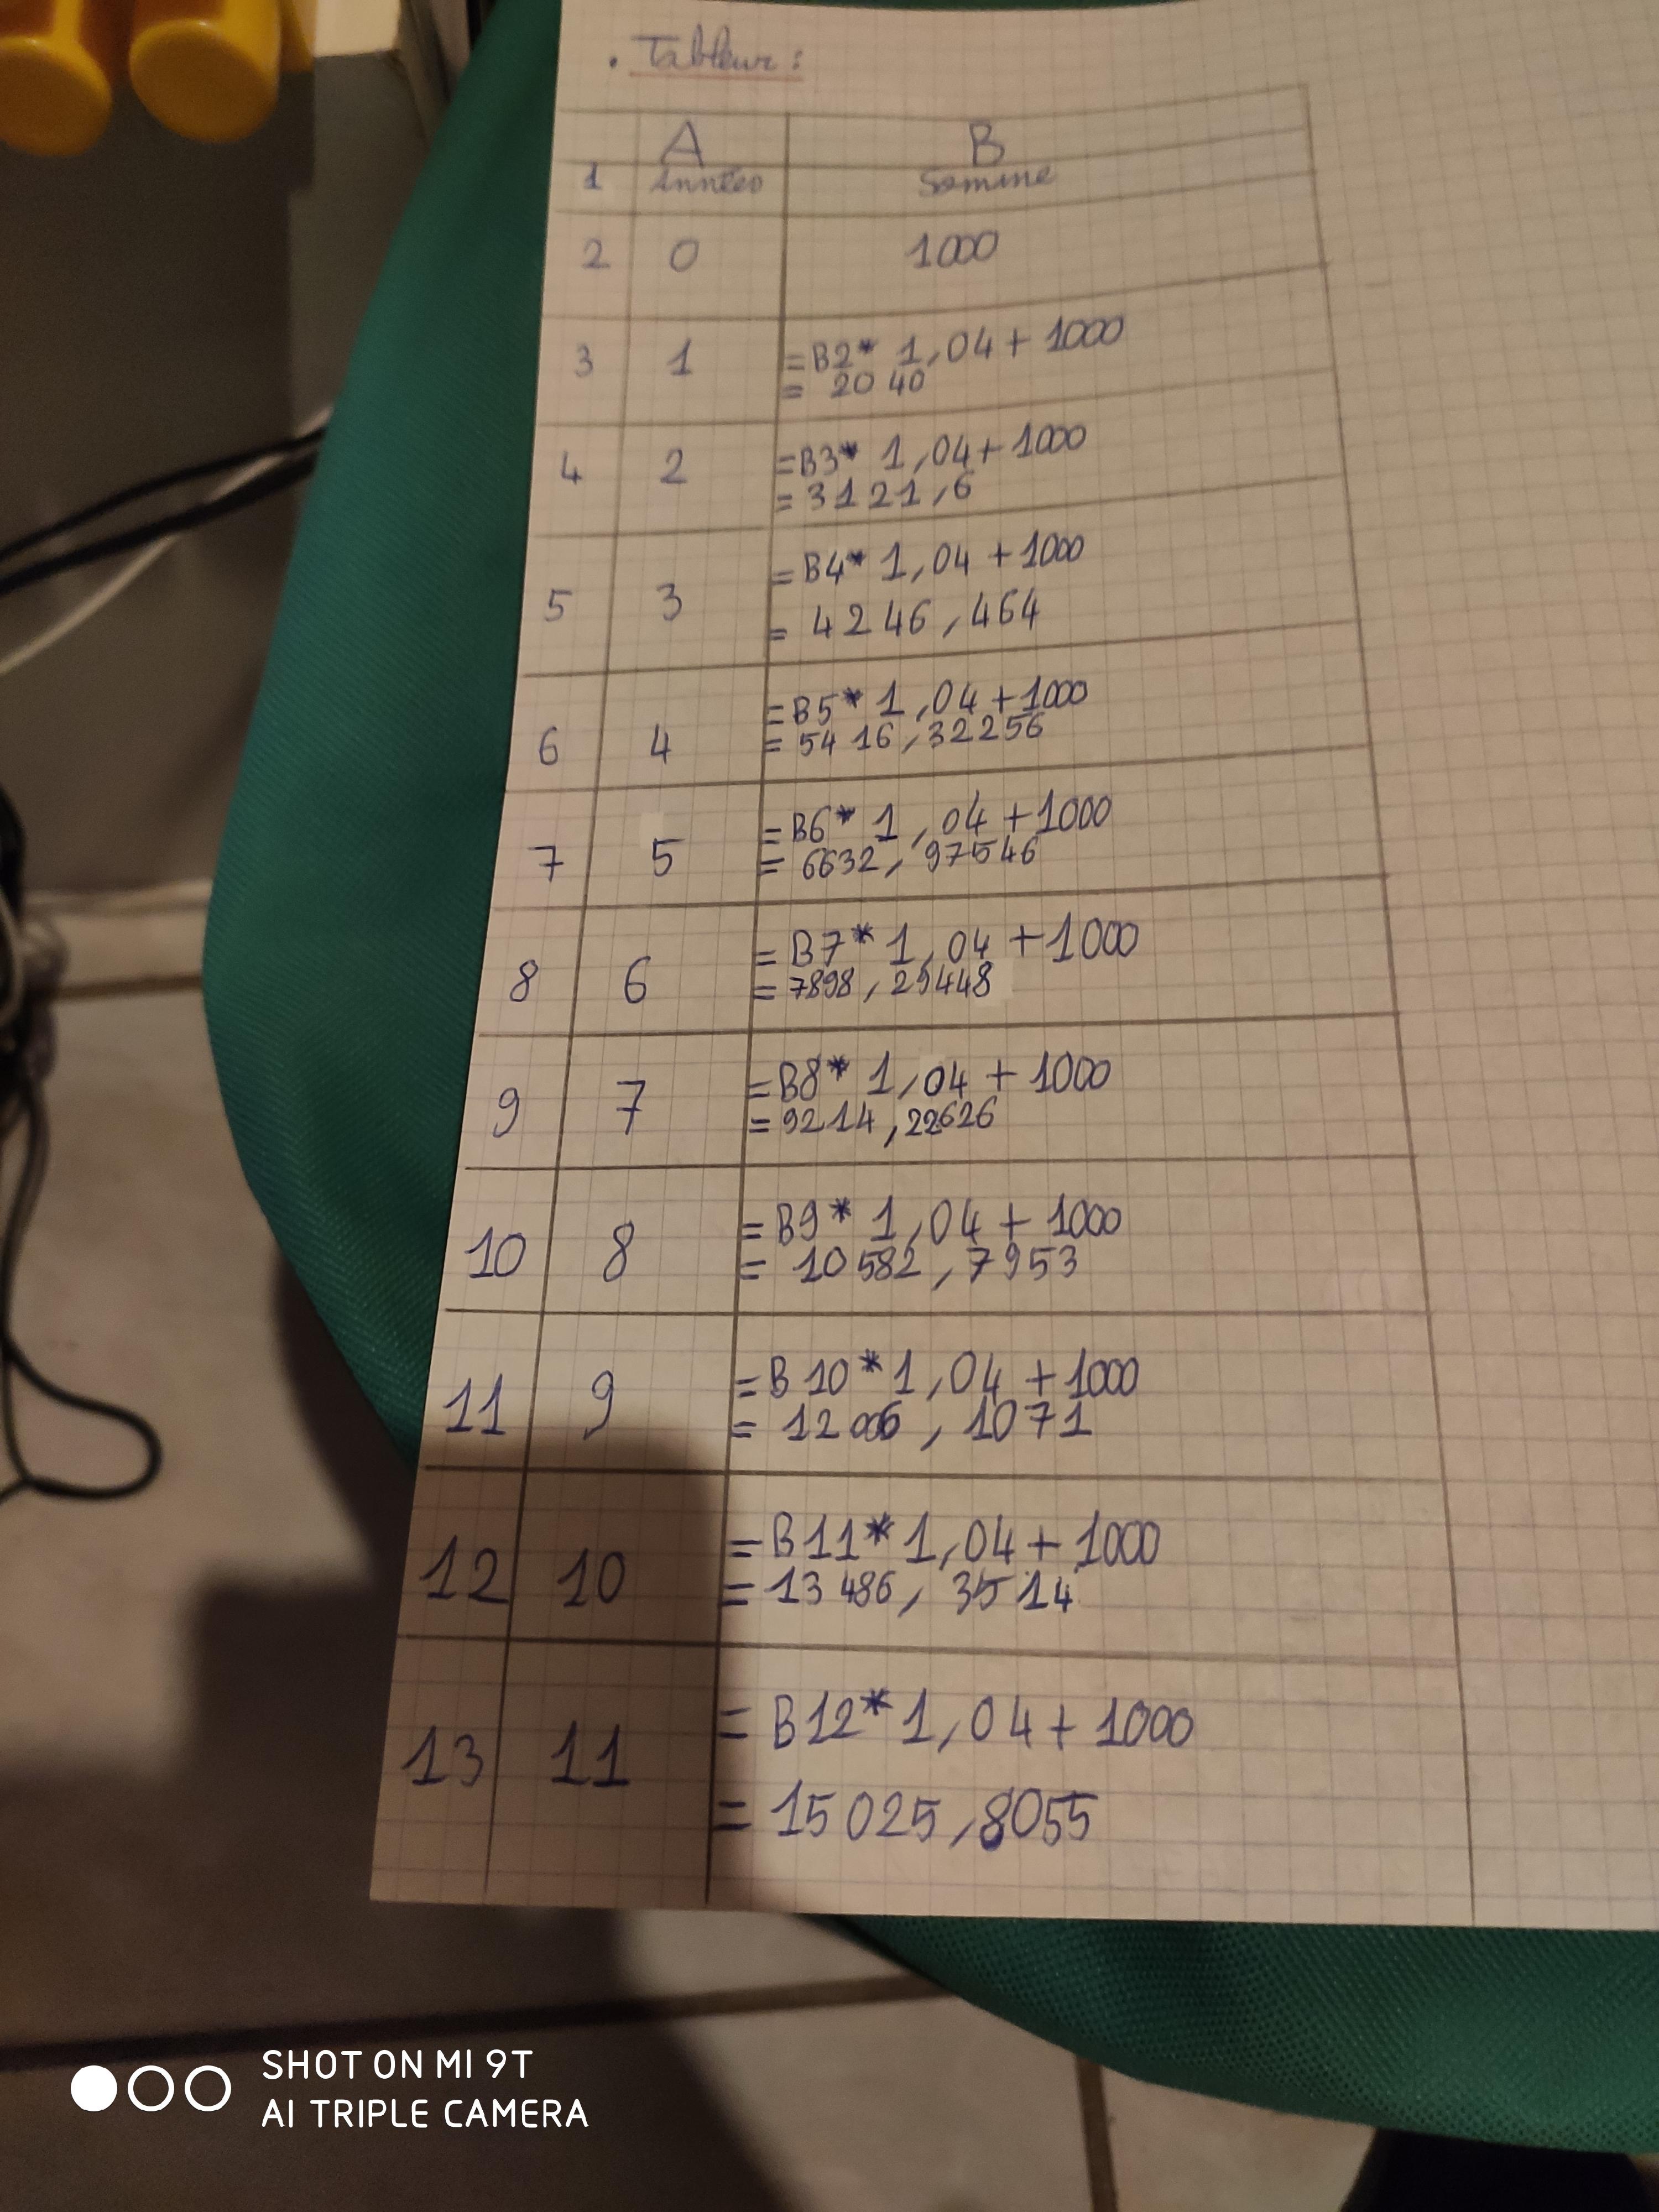 . Tableur :
A B
1 années Somme
2 0 1000
3 1 =B2* 1,04+ 1000
= 2040
4 2 =B3* 1,04+1000
= 3121,6
5 3 =B4* 1,04 +1000
= 4246,464
6 4 =B5* 1,04 +1000
= 5416,32256
7 5 =B6* 1,04 +1000
= 6632,97546
8 6 = B7* 1,04 +1000
= 7898,29448
9 7 =B8* 1,04 + 1000
= 9214,22626
10 8 = B9* 1,04 + 1000
= 10582,7953
11 9 =B10*1,04 +1000
= 12006,1071
12 10 =B11*1,04+ 1000
= 13486,3514
13 11 = B12*1,04+ 1000
= 15025,8055
SHOT ON MI 9T
AI TRIPLE CAMERA